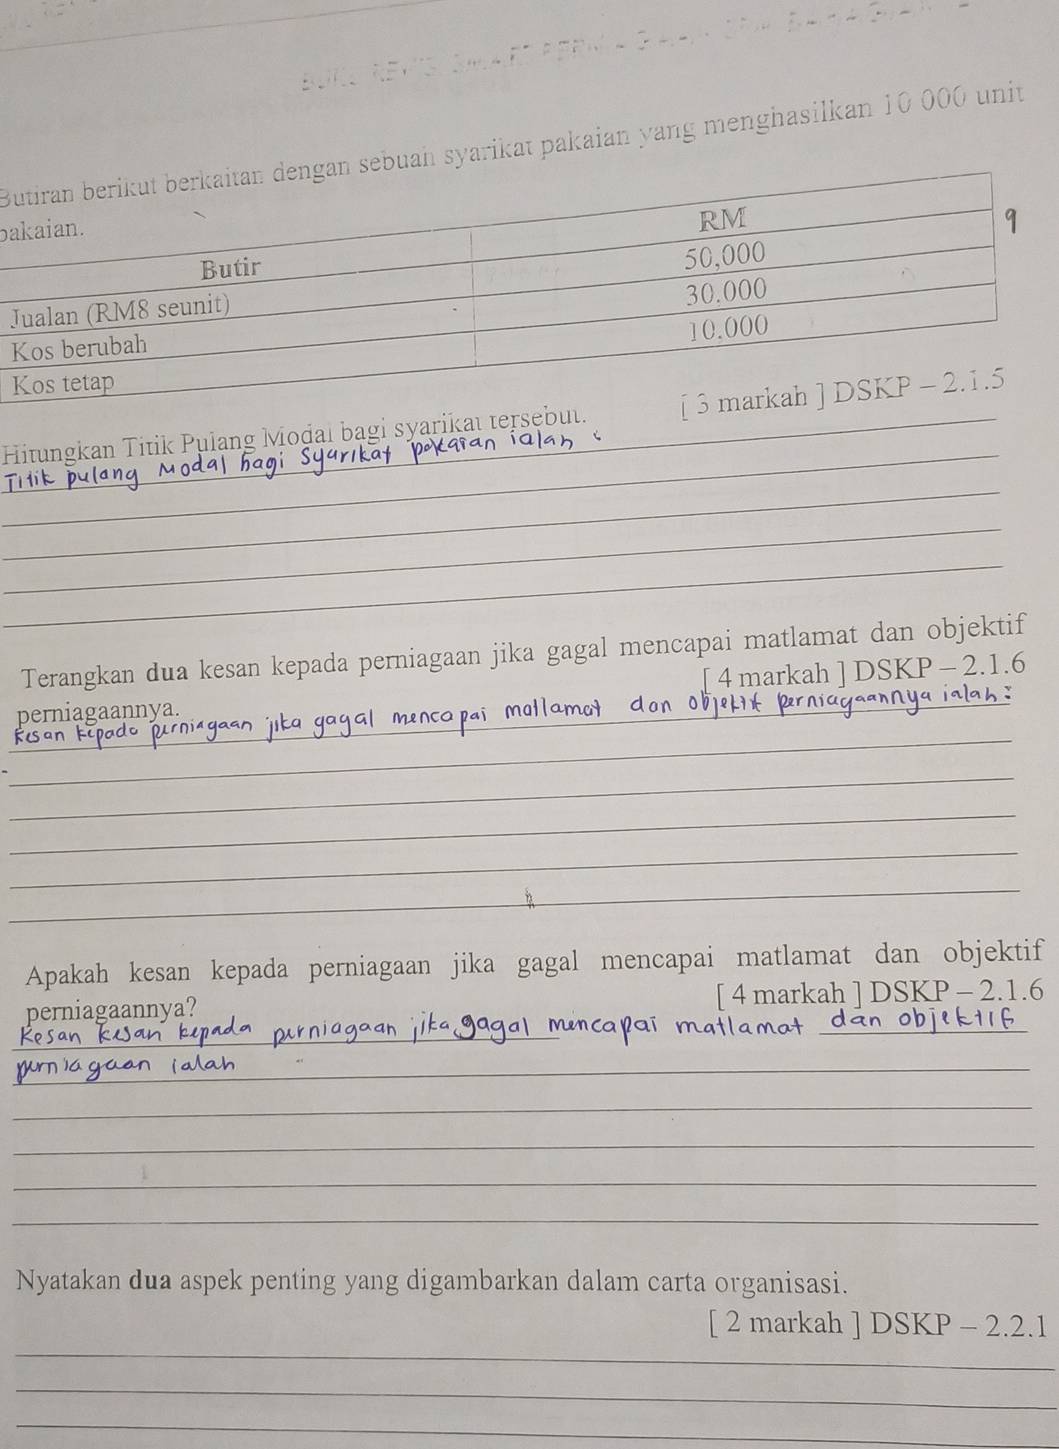 Butiran berikut berkaitan dengan sebuah syarikat pakaian yang menghasilkan 10 000 unit
pakaian.
Butir RM
Jualan (RM8 seunit) 50,000
Kos berubah 30.000
Kos tetap 10.000
9
Hitungkan Titik Pulang Modal bagi syarikat tersebut. [ 3 markah ] DSKP – 2.1.5
Titik pulang Modal bagi Syarikat pakaian ialah :
Terangkan dua kesan kepada perniagaan jika gagal mencapai matlamat dan objektif
perniagaannya. [ 4 markah ] DSKP – 2.1.6
Kesan kepada perniagaan jika gagal mencapai matlamat dan objektif perniagaannya ialah :
Apakah kesan kepada perniagaan jika gagal mencapai matlamat dan objektif
perniagaannya? [ 4 markah ] DSKP – 2.1.6
Kesan kesan kepada perniagaan jika gagal mencapai matlamat dan objektif
perniagaan ialah
Nyatakan dua aspek penting yang digambarkan dalam carta organisasi.
[ 2 markah ] DSKP – 2.2.1